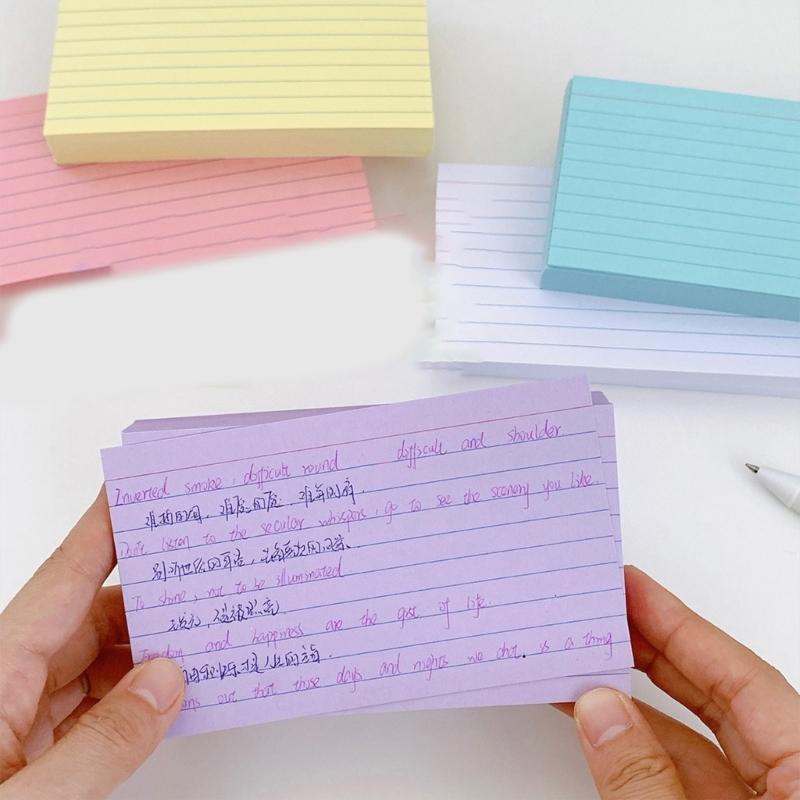 Inverted smoke, difficult round difficult and shoulder
Don't listen to the secular whispers, go to see the scenery you like.
别听世俗的耳语，去看喜欢的风景
To shine, not to be illuminated
去发光，而非被照亮
Freedom and happiness are the gist of life.
自由和快乐才是人生的主旨.
out that those days and nights we chat. is a thing